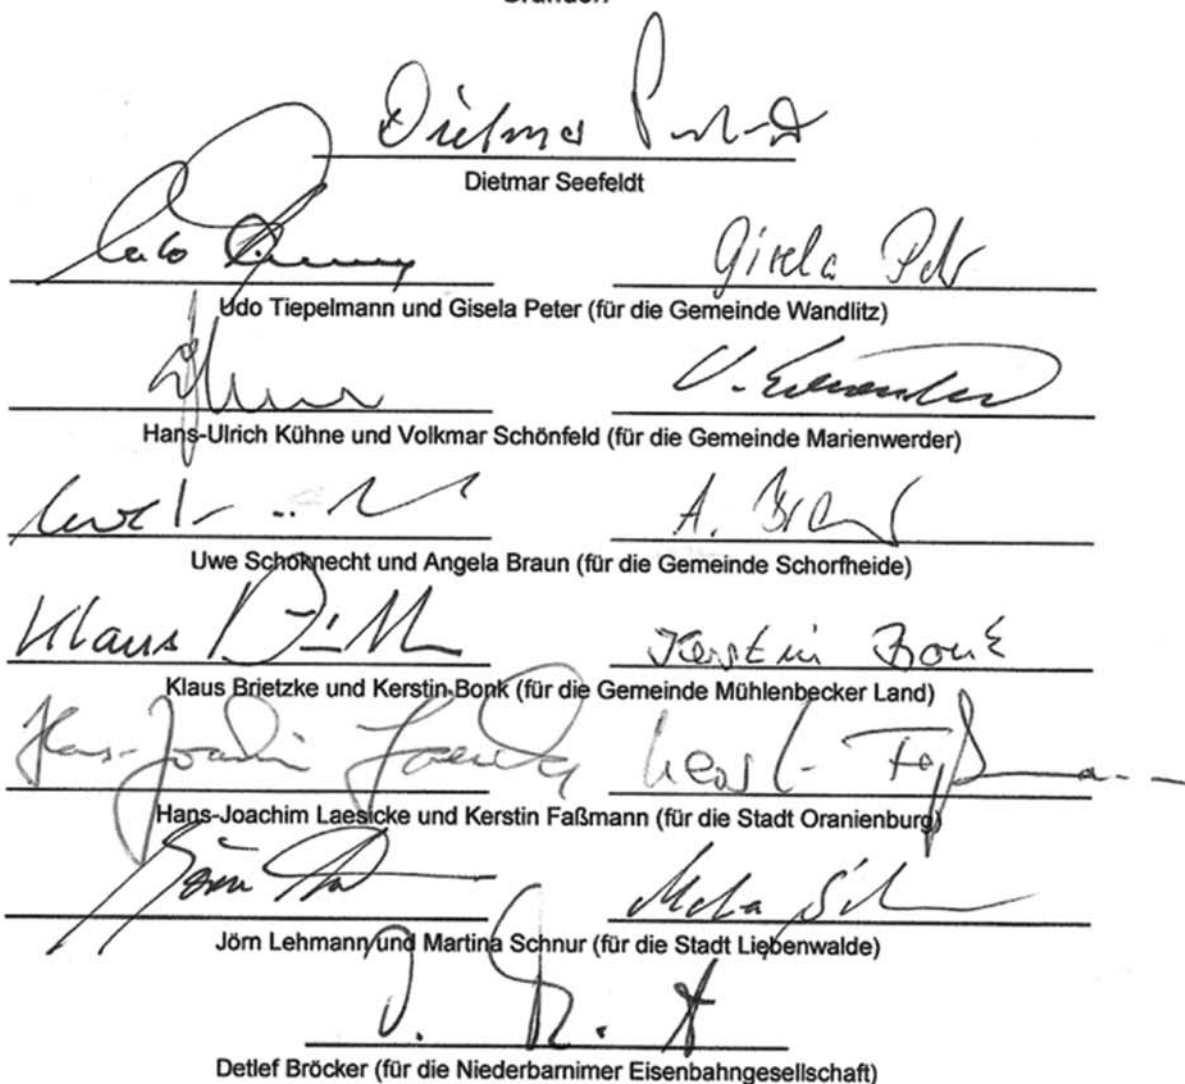 Dietmar
Dietmar Seefeldt
Udo Gisela Peter
Udo Tiepelmann und Gisela Peter (für die Gemeinde Wandlitz)
V. Schönfeld
Hans-Ulrich Kühne und Volkmar Schönfeld (für die Gemeinde Marienwerder)
A. Braun
Uwe Schoknecht und Angela Braun (für die Gemeinde Schorfheide)
Klaus Kerstin Bonk
Klaus Brietzke und Kerstin Bonk (für die Gemeinde Mühlenbecker Land)
Hans-Joachim Laesicke Kerstin Faßmann
Hans-Joachim Laesicke und Kerstin Faßmann (für die Stadt Oranienburg)
Jörn
Jörn Lehmann und Martina Schnur (für die Stadt Liebenwalde)
Detlef Bröcker (für die Niederbarnimer Eisenbahngesellschaft)